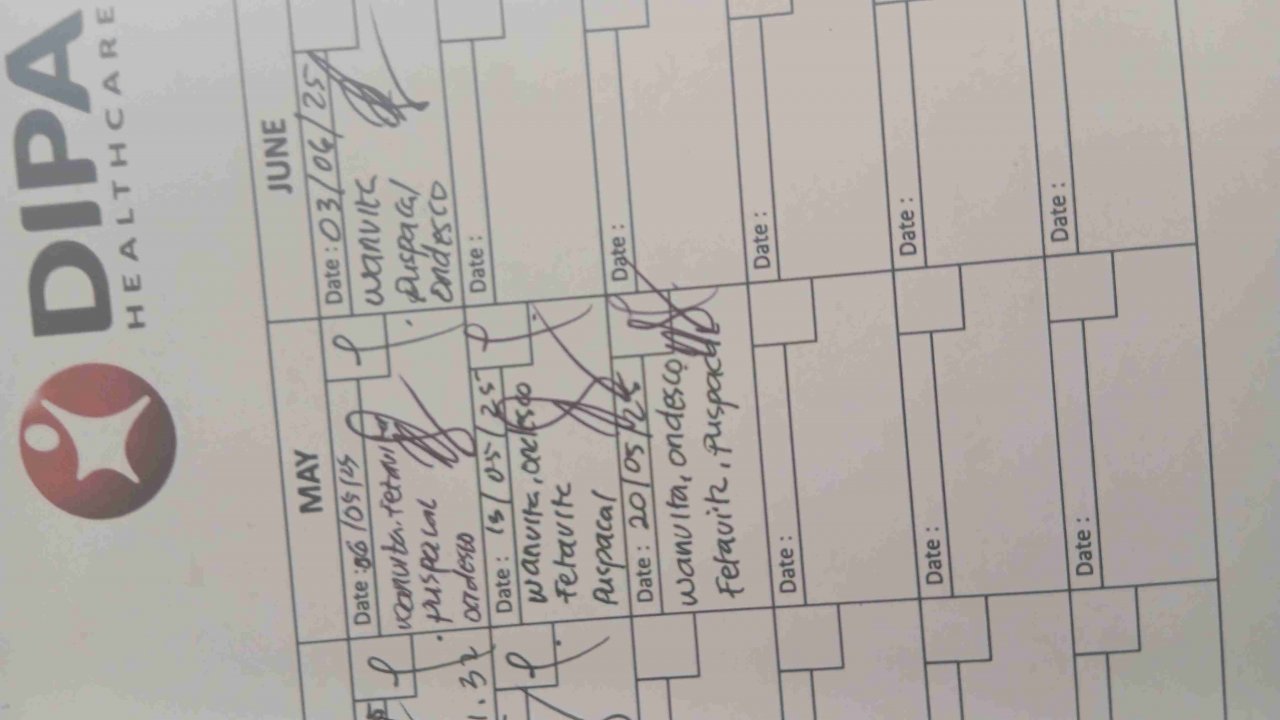 DIPA
HEALTHCARE
MAY
Date : 06/05/25
puspacal
ondesco
Date : 13/05/25
wanvita, ondesco
Fetavite
Puspacal
Date : 20/05/25
wanvita, ondesco
Fetavite, puspacal
Date :
Date :
Date :
JUNE
Date : 03/06/25
wanvita
puspacal
ondesco
Date :
Date :
Date :
Date :
Date :
1.32